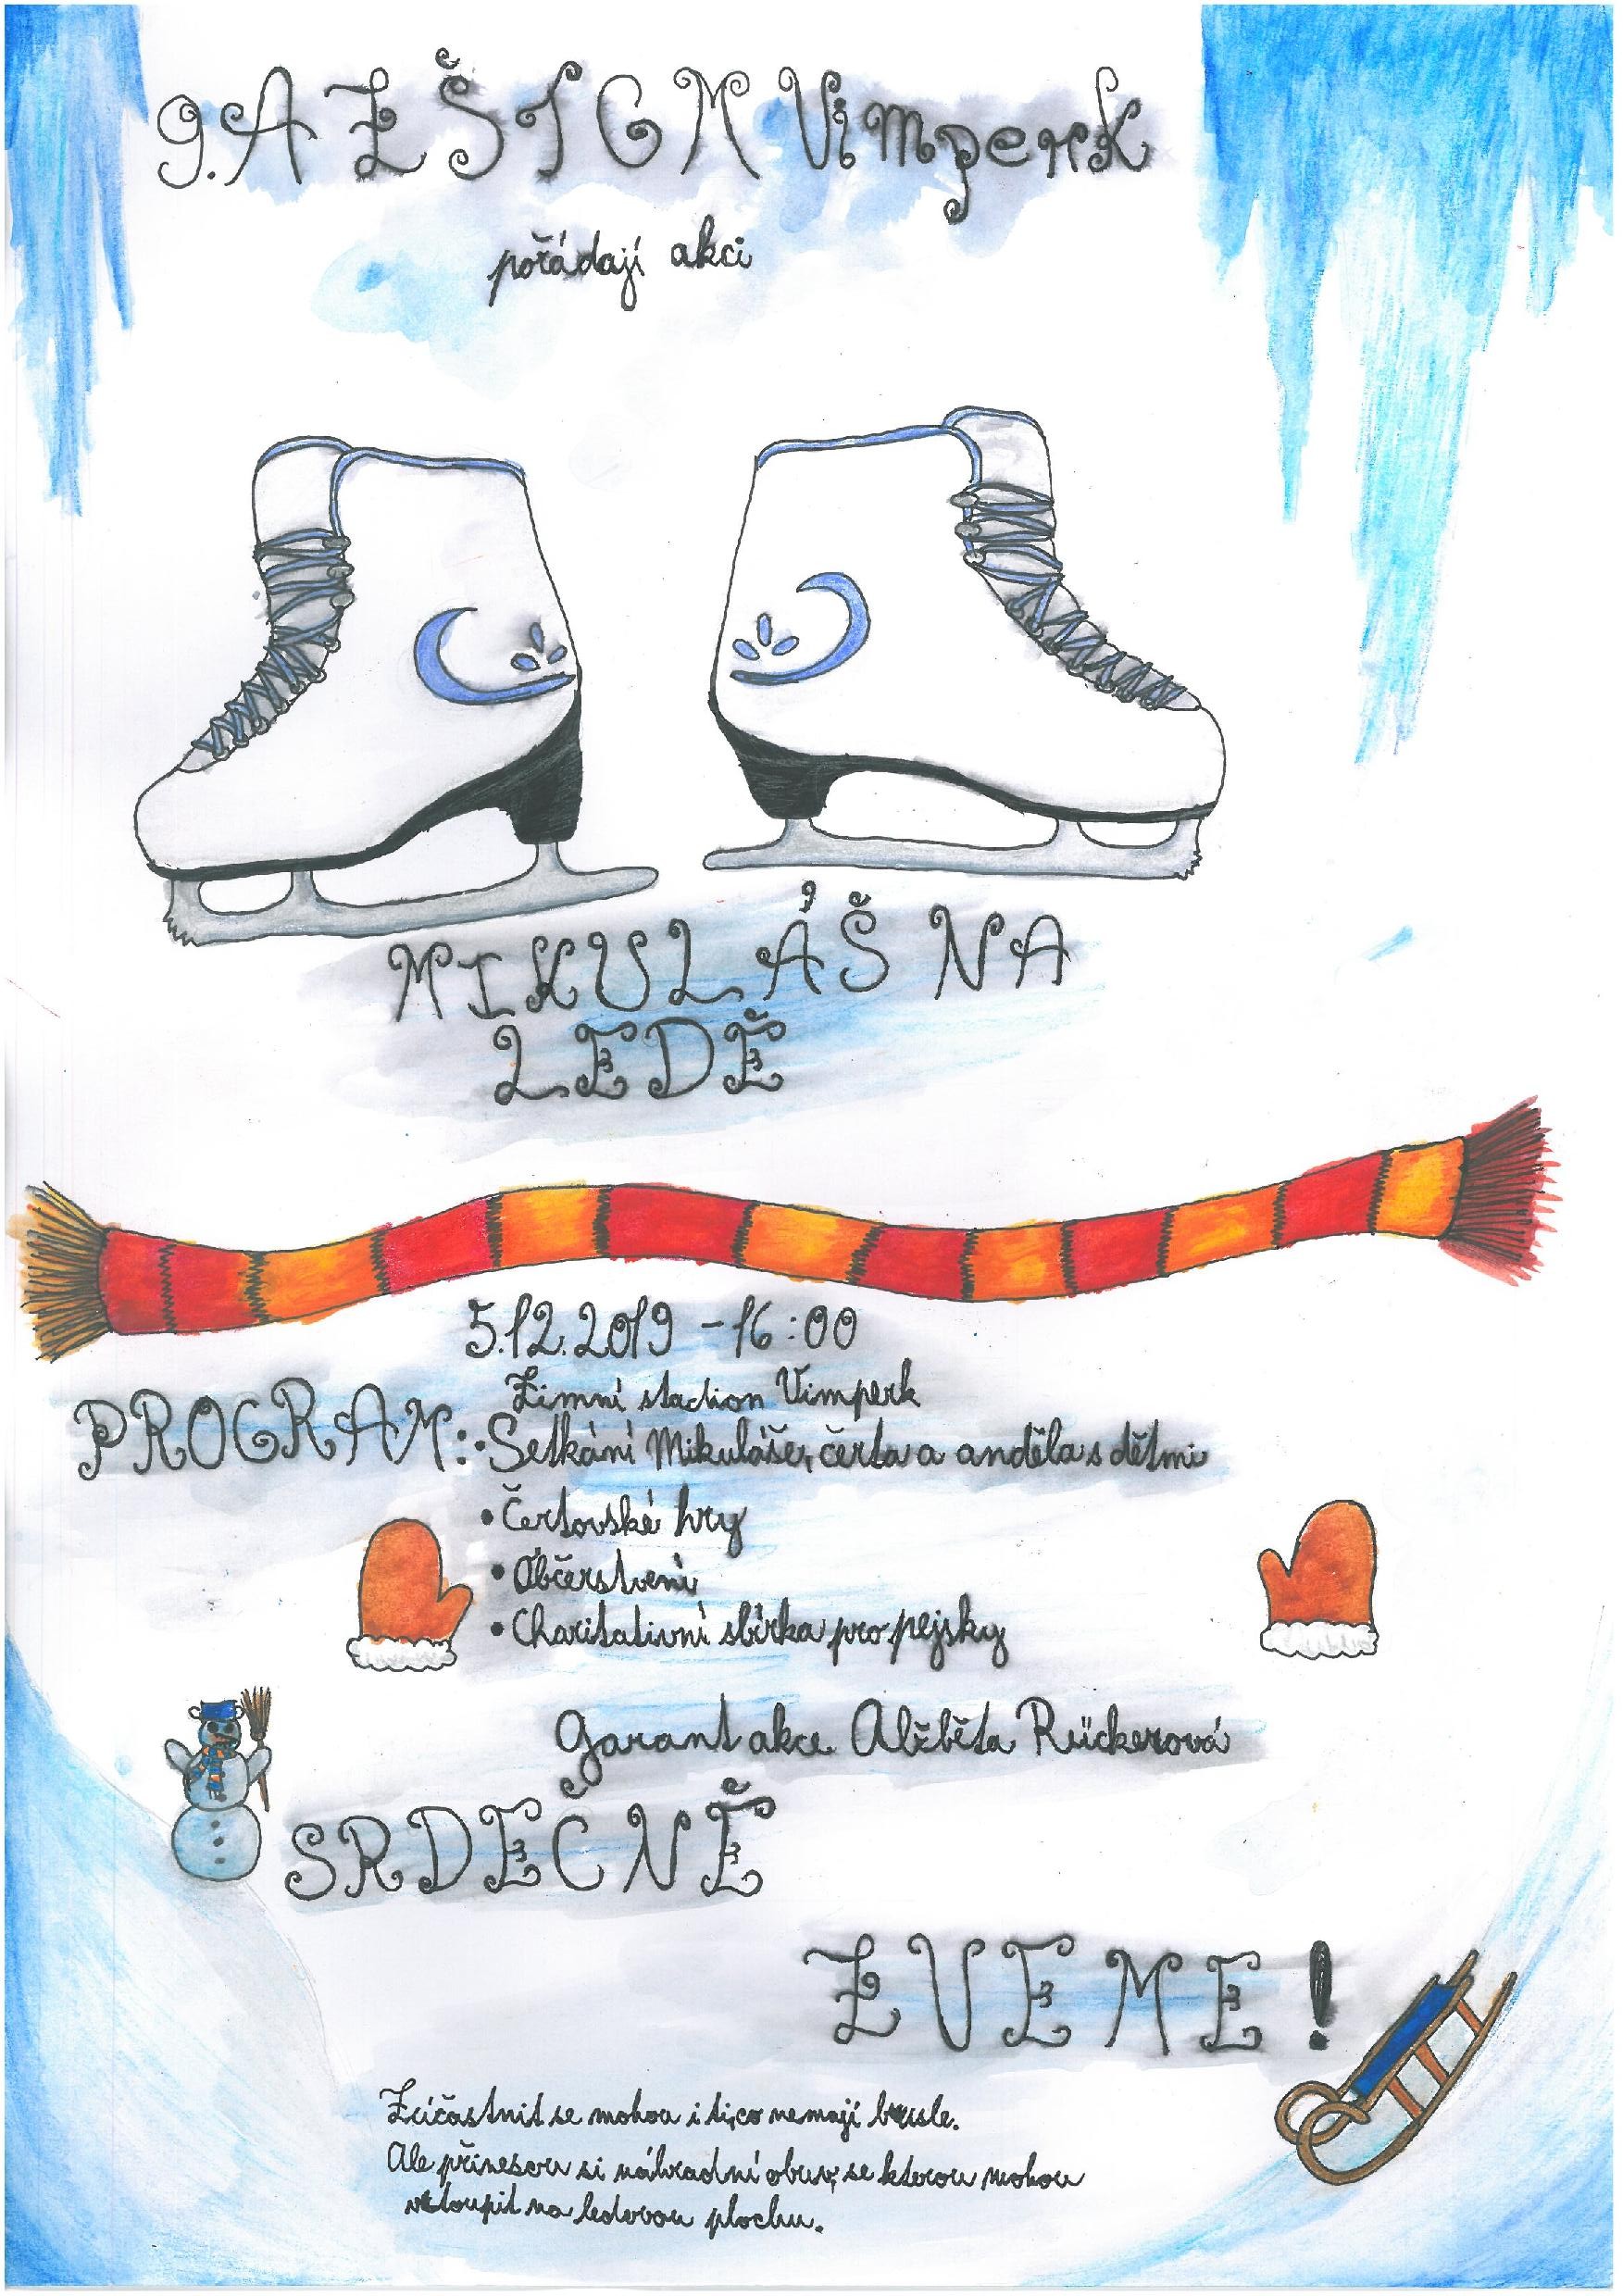 9.A ZŠ TGM Vimperk
pořádají akci
MIKULÁŠ NA
LEDĚ
5.12.2019 - 16:00
Zimní stadion Vimperk
PROGRAM: • Setkání Mikuláše, čerta a anděla s dětmi
• Čertovské hry
• Občerstvení
• Charitativní sbírka pro pejsky
Garant akce Alžběta Rückerová
SRDEČNĚ
ZVEME!
Zúčastnit se mohou i ti, co nemají brusle.
Ale přinesou si náhradní obuv, se kterou mohou
vstoupit na ledovou plochu.